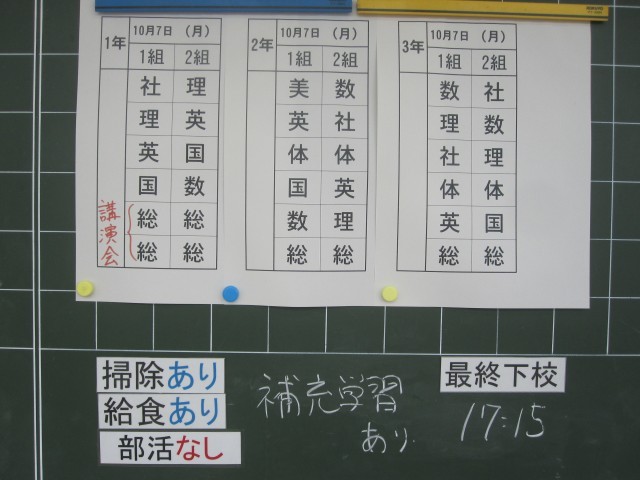 1年
10月7日 (月)
1組 2組
社 理
理 英
英 国
国 数
総 総
総 総
講演会
2年
10月7日 (月)
1組 2組
美 数
英 社
体 体
国 英
数 理
総 総
3年
10月7日 (月)
1組 2組
数 社
理 数
社 理
体 体
英 国
総 総
掃除あり
給食あり
部活なし
補充学習
あり
最終下校
17:15